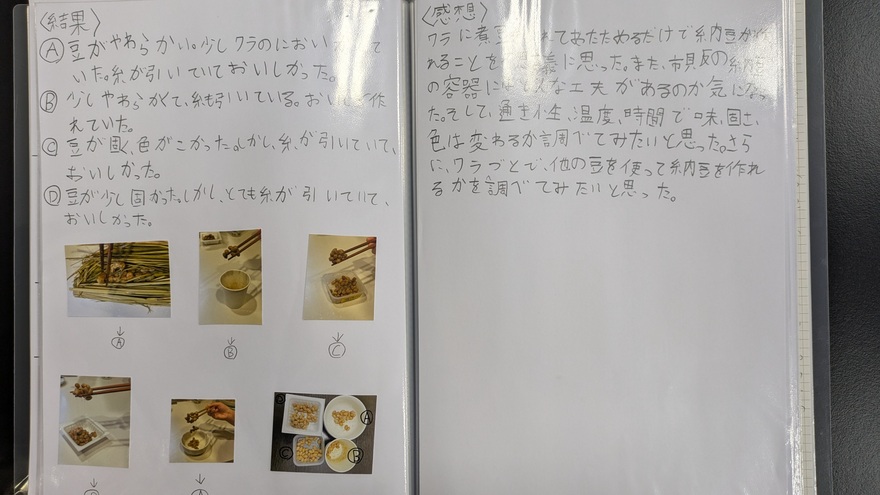 〈結果〉
Ⓐ豆がやわらかい。少しワラのにおい
いた。糸が引いていておいしかった。
Ⓑ少しやわらかくて、糸も引いている。おいし 作
れていた。
Ⓒ豆が固く、色がこかった。しかし、糸が引いていて、
おいしかった。
Ⓓ豆が少し固かった。しかし、とても糸が引いていて、
おいしかった。
↓
Ⓐ
↓
Ⓑ
↓
Ⓒ
↓
↓
Ⓐ
Ⓒ
Ⓑ
〈感想〉
ワラに煮豆 れてあたためるだけで納豆が
れることを に思った。また、市販の納
の容器に な工夫があるのか気にな
た。そして、通き性、温度、時間で味、固さ、
色は変わるか調べてみたいと思った。さら
に、ワラづとで、他の豆を使って納豆を作れ
るかを調べてみたいと思った。